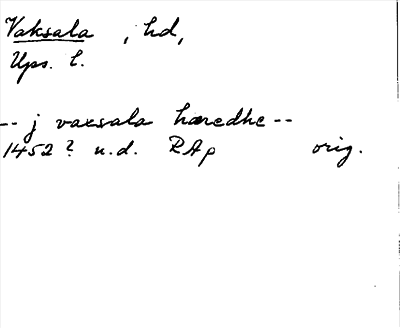 Vaksala , hd,
Ups. l.
-- j vaxsala hæredhe --
1452? u.d. RAp orig.